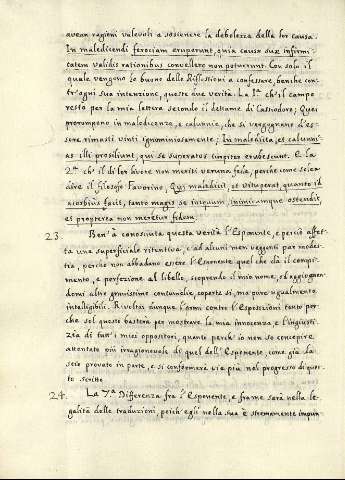 avean ragioni valevoli a sostenere la debolezza della lor causa.
In maledicendi ferociam eruperunt, quia causæ suæ infirmi-
tatem validis rationibus convellere non potuerunt. Con solo il
quale vengono le buone delle Riflessioni a confessare, benche con-
tr'ogni sua intenzione, queste due verità. La 1ª. ch'il campo
resto per la mia lettera secondo il dettame di Cassiodoro; Quei
prorompeno in maledicenze, e calunnie, che si vergognano d'es-
sere rimasti vinti ignominiosamente; In maledicta, et calumni-
as illi prosiliunt, qui se superatos turpiter erubescunt. E la
2ª. ch'il di lor livore non meriti veruna fede, perche come scica-
dire il filosofo Favorino, Qui maledicit, et vituperat, quanto id
acerbius facit, tanto magis se iniquum, inimicumque ostendit,
et propterea non meretur fidem.
23. Ben'à conosciuta questa verità l'Esponente, e perciò affet-
ta una superficiale ritentiva, e ad alcuni men veggenti par modes-
tia, perche non abbadano essere l'Esponente quel che dà il compi-
mento, e perfezione al libello, scoprendo il mio nome, ed aggiognen-
domi altre gravissime contumelie, coperte si, ma pure ugualmente
intelligibili. Rivoltai dunque l'armi contro l'Esposizioni tanto per-
che sol questo bastera per mostrare la mia innocenza, e l'ingiusti-
zia di tutt'i miei oppositori, quanto perch'io non so concepire
attentato più irragionevole di quel dell'Esponente, come già la-
scio provato in parte, e si confermerà via più nel progresso di ques-
to scritto.
24. La 7ª. Differenza fra l'Esponente, e frame sarà nella le-
galità delle traduzioni, poich'egli nella sua è stremamente impun